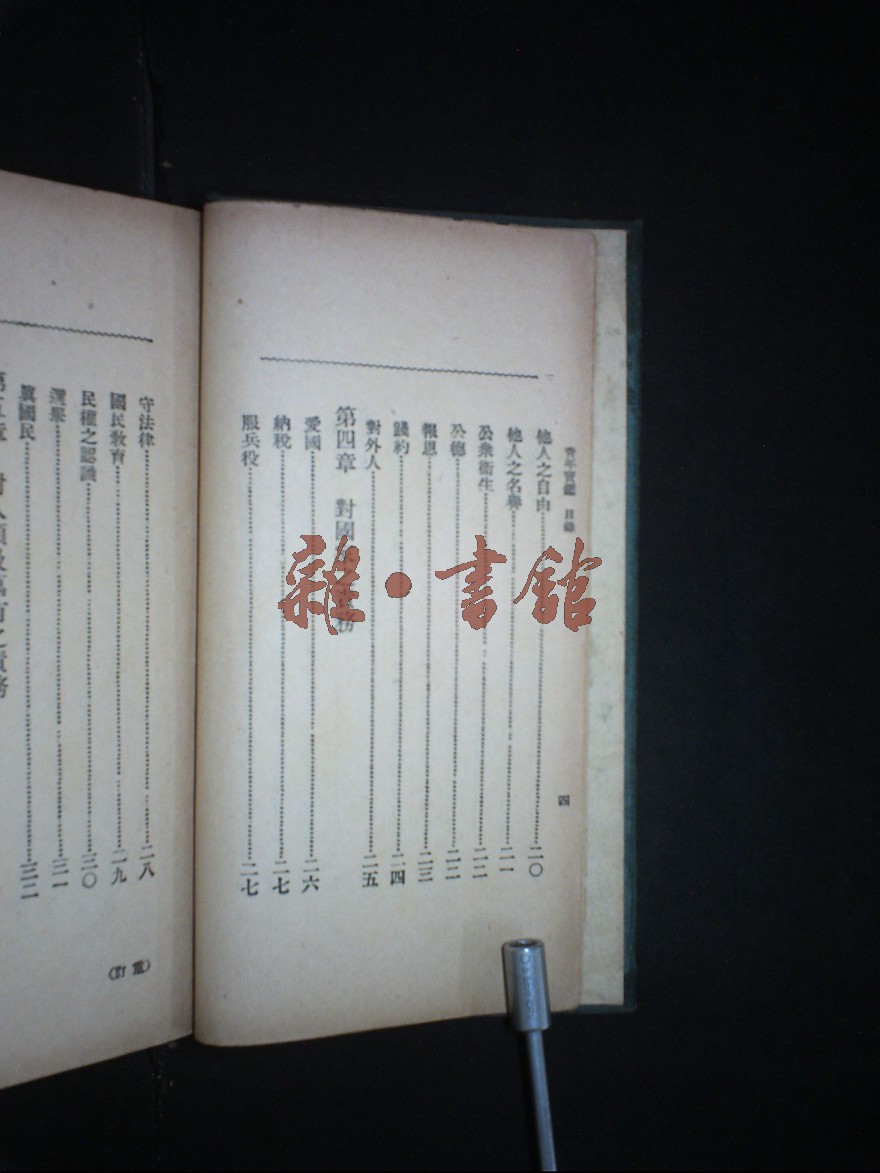 青年寶鑑 目錄
四
他人之自由 二〇
他人之名譽 二一
公衆衛生 二二
公德 二二
報恩 二三
踐約 二四
對外人 二五
第四章 對國家之責務
愛國 二六
納稅 二七
服兵役 二七
守法律 二八
國民教育 二九
民權之認識 三〇
選舉 三一
眞國民 三二
第五章 對人類及萬有之責務
(重訂)
雜·書館